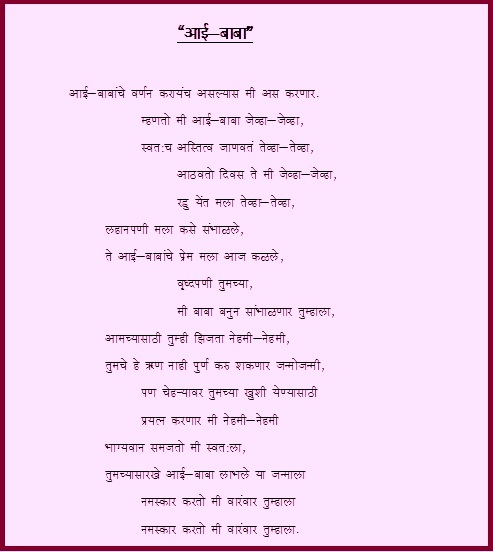 “आई–बाबा”
आई–बाबांचे वर्णन करायंच असल्यास मी अस करणार.
म्हणतो मी आई–बाबा जेव्हा–जेव्हा,
स्वतःच अस्तित्व जाणवतं तेव्हा–तेव्हा,
आठवतो दिवस ते मी जेव्हा–जेव्हा,
रडु येंत मला तेव्हा–तेव्हा,
लहानपणी मला कसे संभाळले,
ते आई–बाबांचे प्रेम मला आज कळले,
वृध्दपणी तुमच्या,
मी बाबा बनुन सांभाळणार तुम्हाला,
आमच्यासाठी तुम्ही झिजता नेहमी–नेहमी,
तुमचे हे ऋण नाही पुर्ण करु शकणार जन्मोजन्मी,
पण चेहऱ्यावर तुमच्या खुशी येण्यासाठी
प्रयत्न करणार मी नेहमी–नेहमी
भाग्यवान समजतो मी स्वतःला,
तुमच्यासारखे आई–बाबा लाभले या जन्माला
नमस्कार करतो मी वारंवार तुम्हाला
नमस्कार करतो मी वारंवार तुम्हाला.